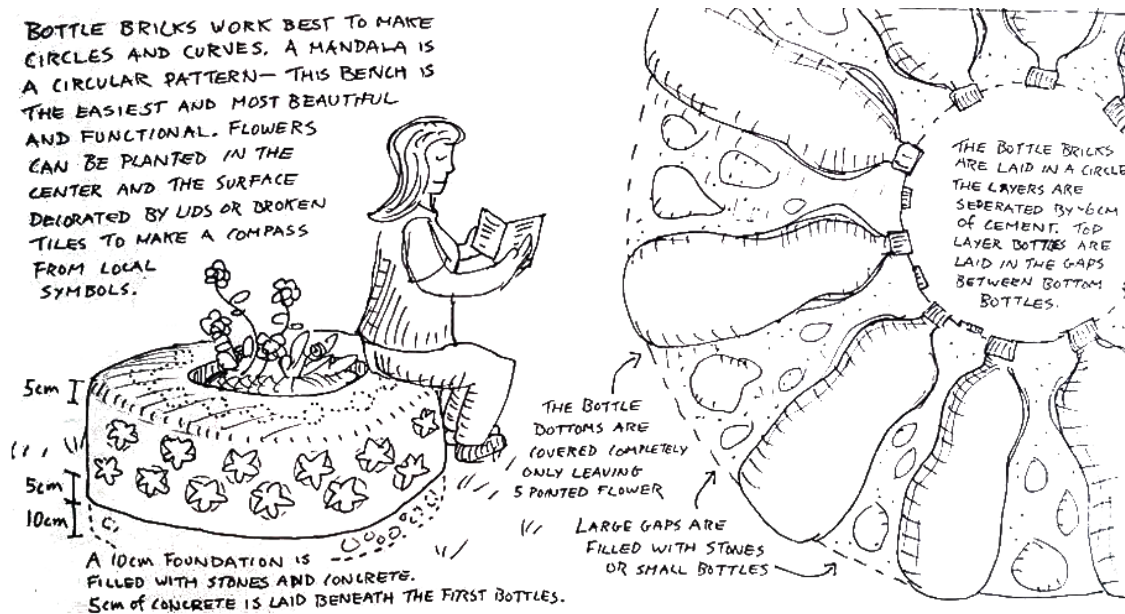 BOTTLE BRICKS WORK BEST TO MAKE
CIRCLES AND CURVES. A MANDALA IS
A CIRCULAR PATTERN— THIS BENCH IS
THE EASIEST AND MOST BEAUTIFUL
AND FUNCTIONAL. FLOWERS
CAN BE PLANTED IN THE
CENTER AND THE SURFACE
DECORATED BY LIDS OR BROKEN
TILES TO MAKE A COMPASS
FROM LOCAL
SYMBOLS.
5cm
5cm
10cm
A 10cm FOUNDATION IS
FILLED WITH STONES AND CONCRETE.
5cm of CONCRETE IS LAID BENEATH THE FIRST BOTTLES.
THE BOTTLE
BOTTOMS ARE
COVERED COMPLETELY
ONLY LEAVING
5 POINTED FLOWER
LARGE GAPS ARE
FILLED WITH STONES
OR SMALL BOTTLES
THE BOTTLE BRICKS
ARE LAID IN A CIRCLE
THE LAYERS ARE
SEPERATED BY ~6cm
OF CEMENT. TOP
LAYER BOTTLES ARE
LAID IN THE GAPS
BETWEEN BOTTOM
BOTTLES.